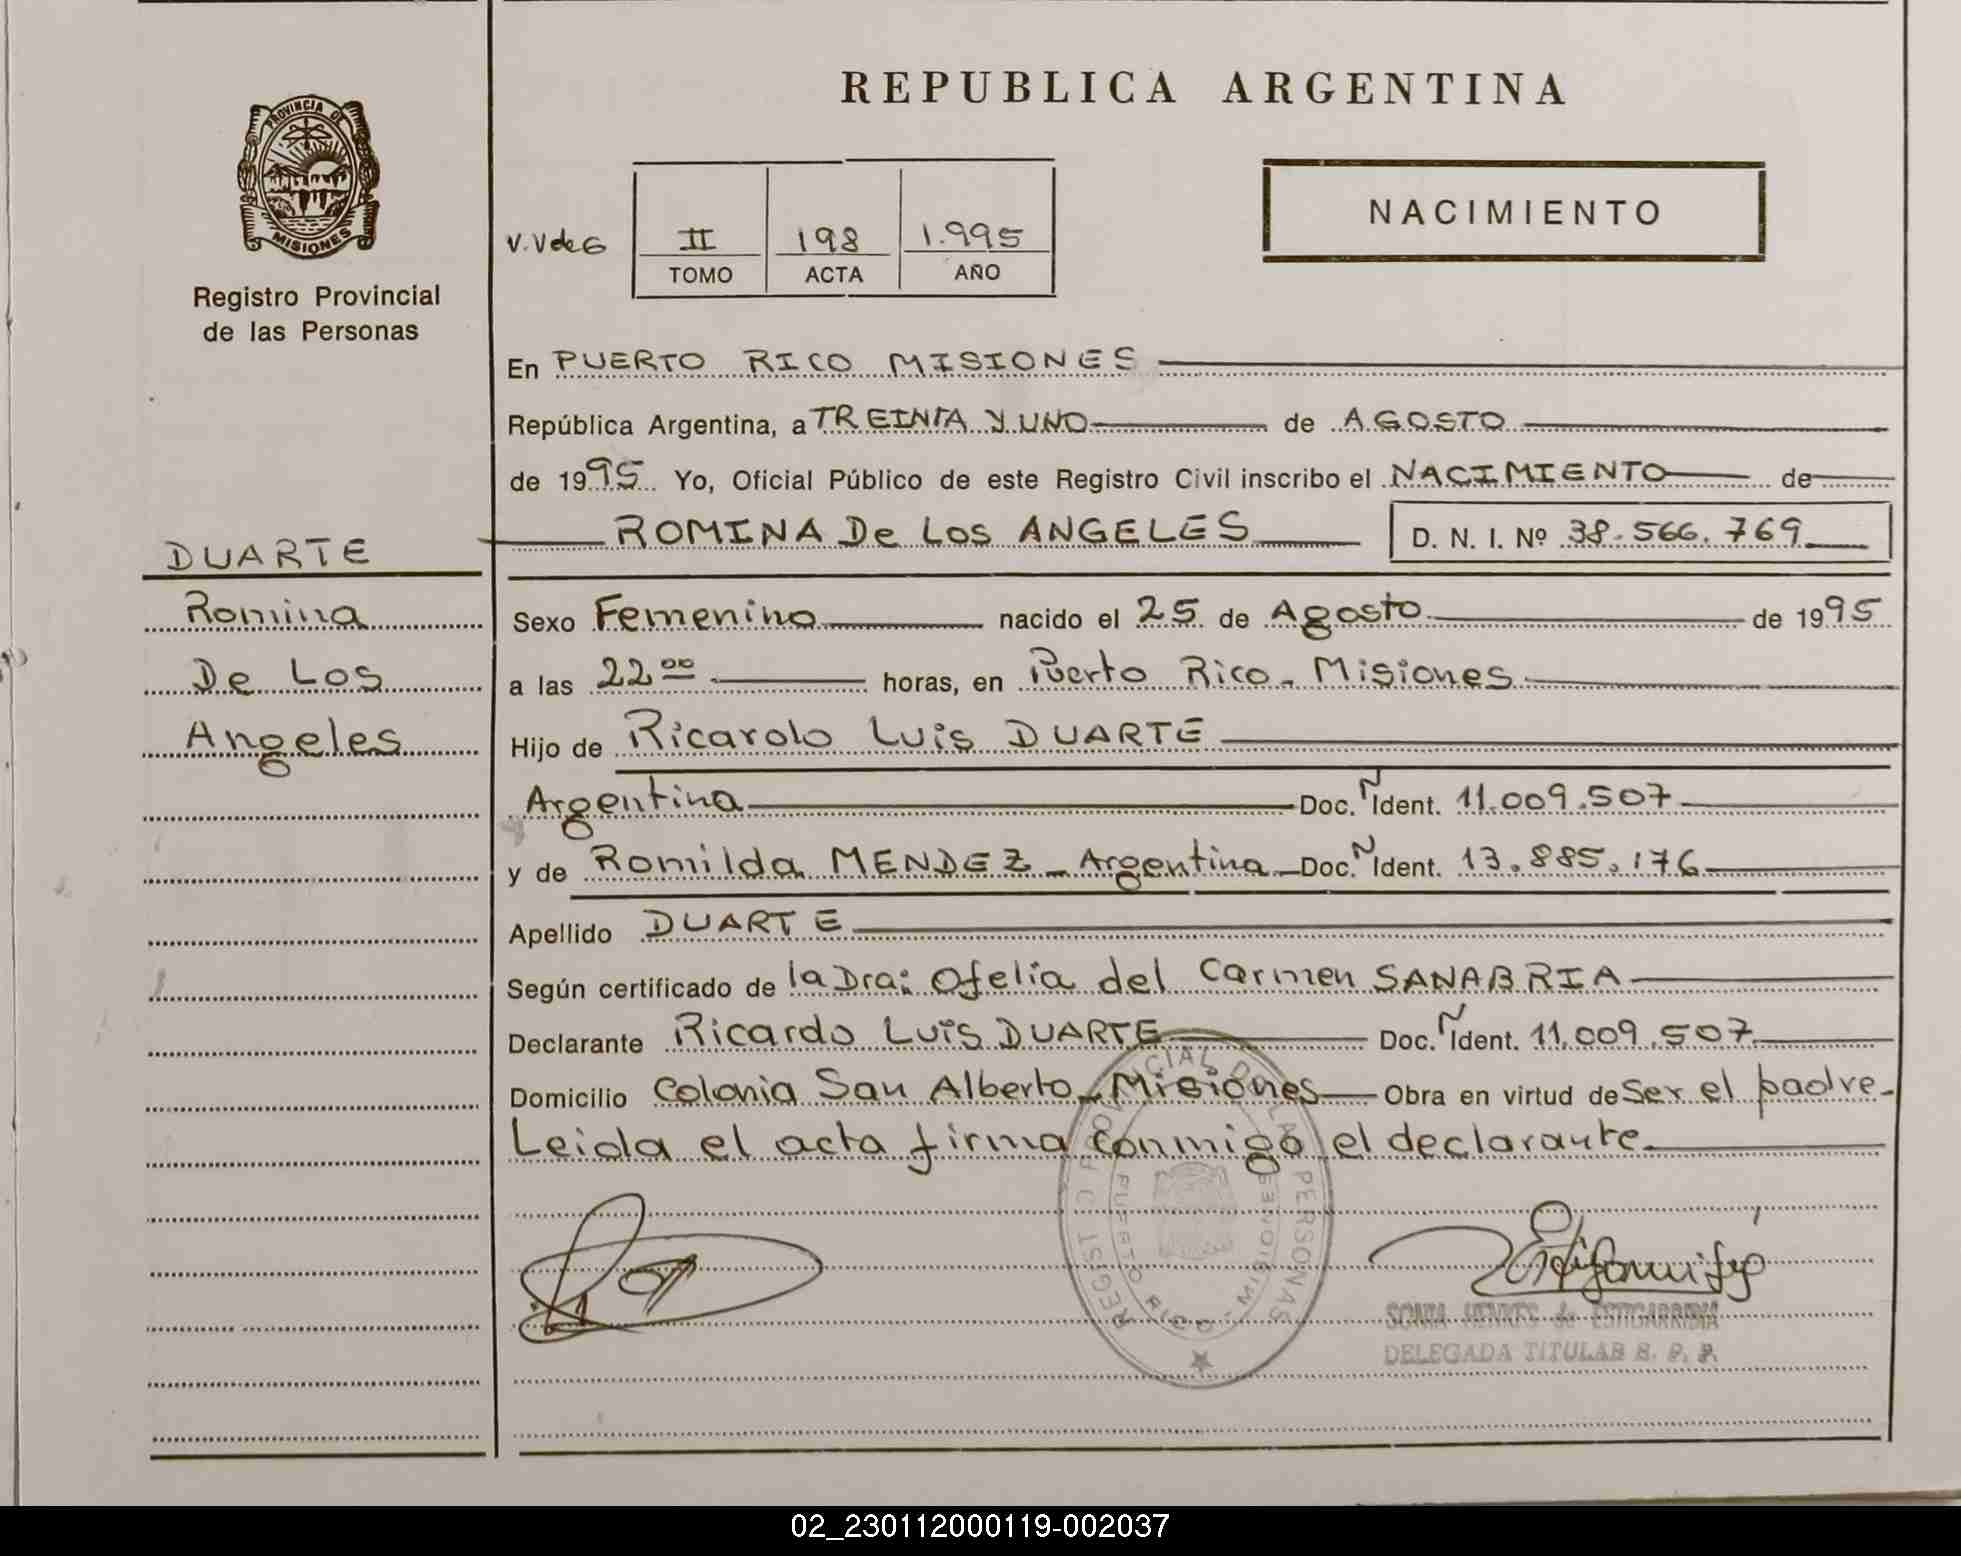 REPUBLICA ARGENTINA
PROVINCIA DE
MISIONES
Registro Provincial
de las Personas
NACIMIENTO
V.VdeG
II 198 1.995
TOMO ACTA AÑO
En PUERTO RICO MISIONES
República Argentina, a TREINTA Y UNO de AGOSTO
de 1995 Yo, Oficial Público de este Registro Civil inscribo el NACIMIENTO de
ROMINA De Los ANGELES D. N. I. Nº 38.566.769
DUARTE
Romina
De Los
Angeles
Sexo Femenino nacido el 25 de Agosto de 1995
a las 22 00 horas, en Puerto Rico - Misiones
Hijo de Ricardo Luis DUARTE
Argentina Doc. N Ident. 11.009.507
y de Romilda MENDEZ - Argentina Doc. N Ident. 13.885.176
Apellido DUARTE
Según certificado de la Dra: Ofelia del Carmen SANABRIA
Declarante Ricardo Luis DUARTE Doc. N Ident. 11.009.507
Domicilio Colonia San Alberto - Misiones Obra en virtud de Ser el padre -
Leida el acta firma conmigo el declarante
REGISTRO PROVINCIAL DE LAS PERSONAS
PUERTO RICO - MISIONES
SONIA HENRES de ESTIGARRIBIA
DELEGADA TITULAR R. P. P.
02_230112000119-002037